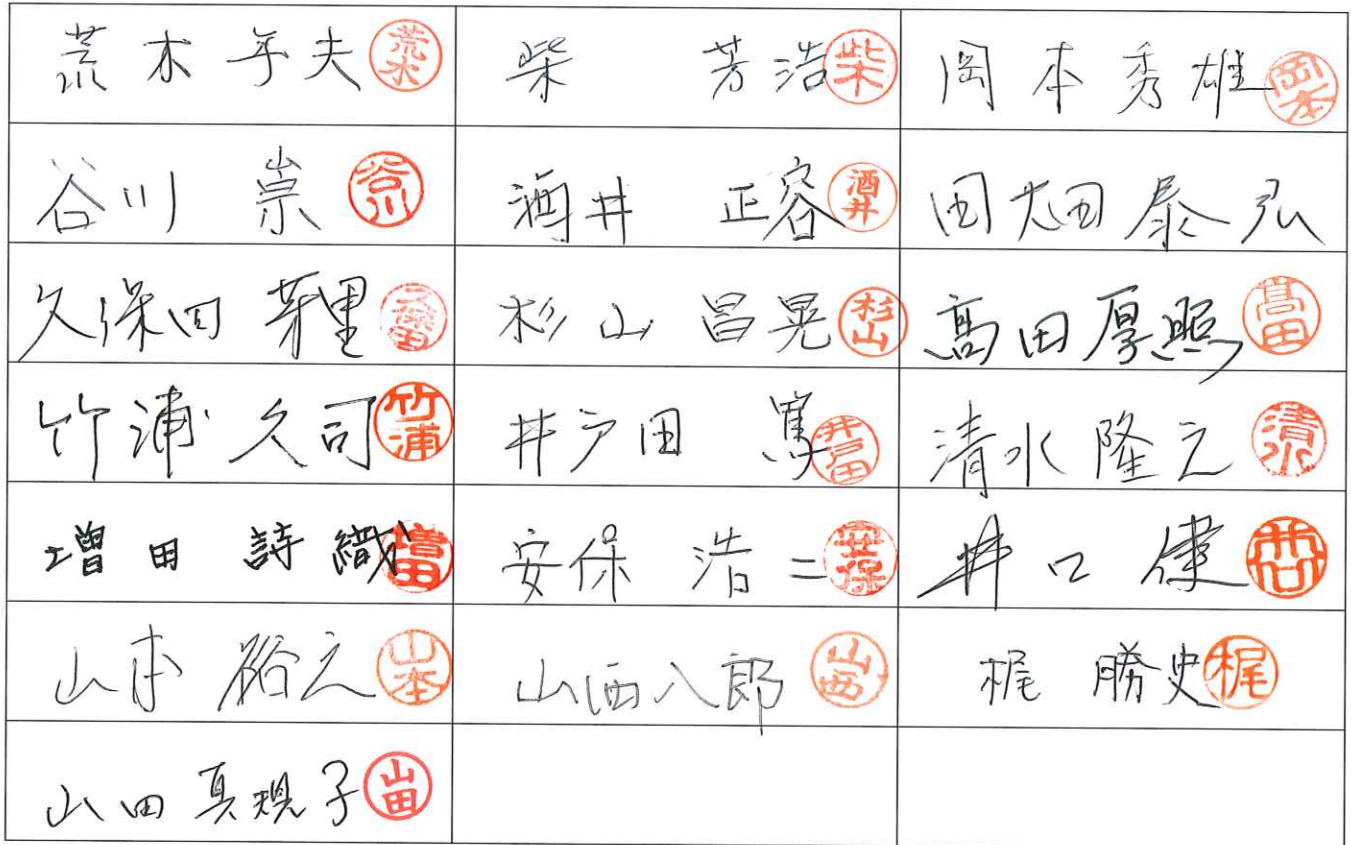 荒木年夫 荒木 柴 芳浩 柴 岡本秀雄 岡本
谷川 崇 谷川 酒井 正容 酒井 田畑泰弘
久保田 芽里 久保田 杉山 昌晃 杉山 髙田厚照 髙田
竹浦 久司 竹浦 井戸田 篤 井戸田 清水 隆之 清水
増田 詩織 増田 安保 浩二 安保 井口 健 井口
山本 裕之 山本 山西八郎 山西 梶 勝史 梶
山田真規子 山田